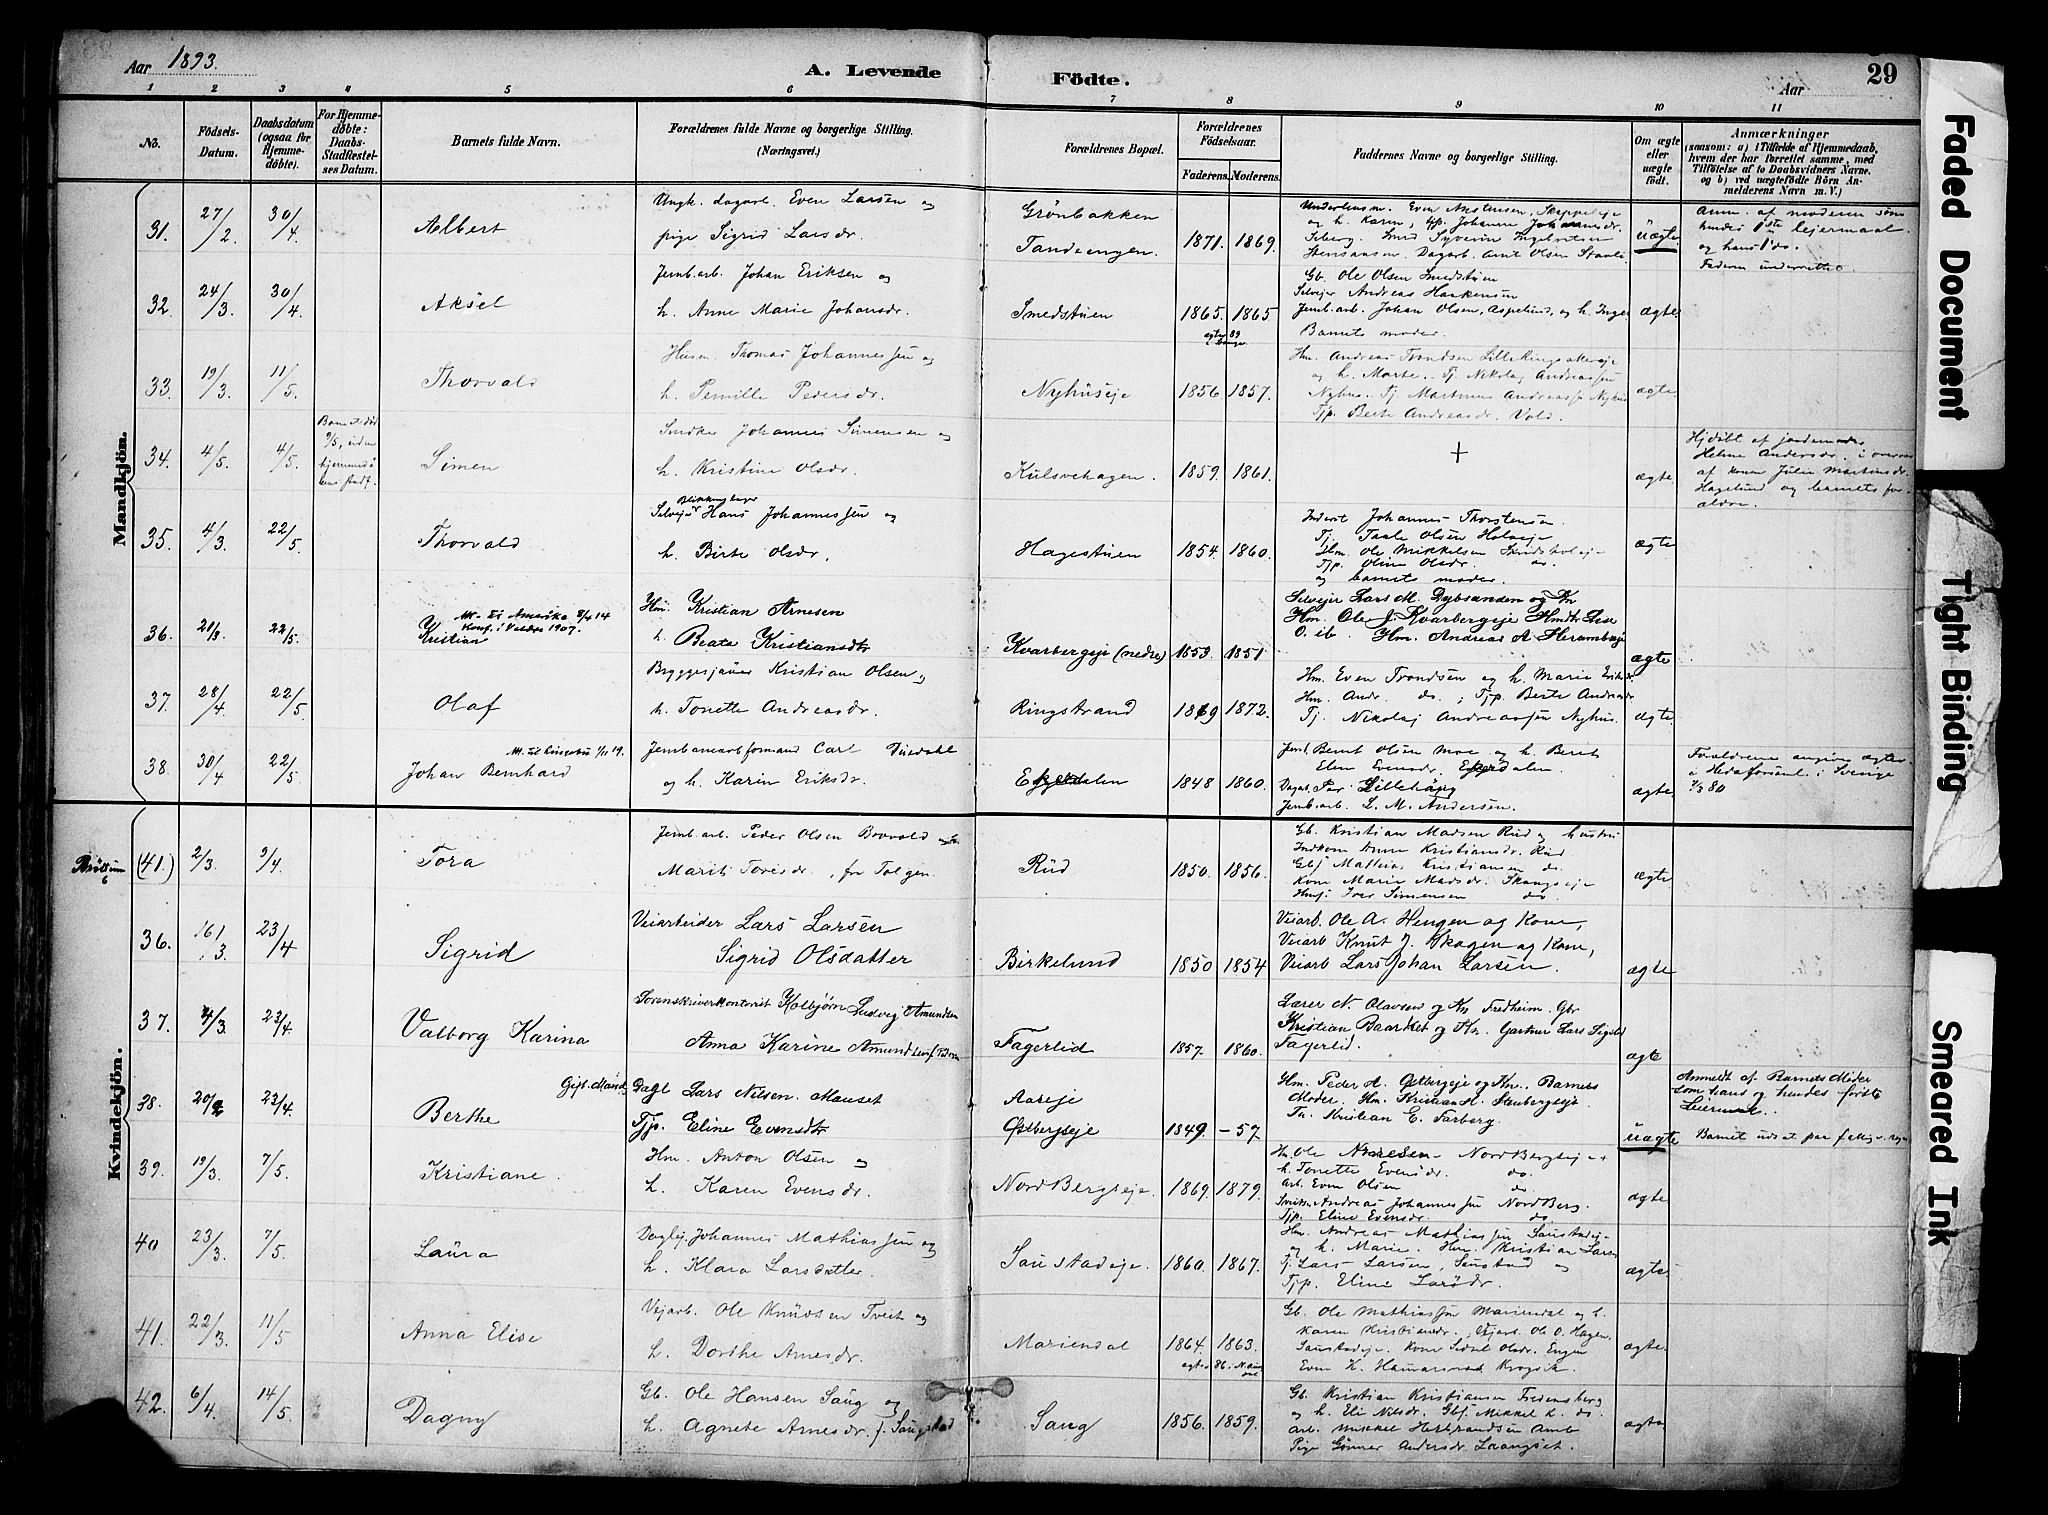 Aar 1893.
A. Levende Födte.
Aar
29
1 2 3 4 5 6 7 8 9 10 11
No.
Födsels-Datum.
Daabsdatum (ogsaa for Hjemmedöbte).
For Hjemmedöbte: Daabs-Stadfæstelses Datum.
Barnets fulde Navn.
Forældrenes fulde Navne og borgerlige Stilling. (Næringsvei.)
Forældrenes Bopæl.
Forældrenes Födselsaar.
Faderens. Moderens.
Faddernes Navne og borgerlige Stilling.
Om ægte eller uægte födt.
Anmærkninger
(saasom: a) i Tilfælde af Hjemmedaab, hvem der har forrettet samme, med Tilföielse af to Daabsvidners Navne, og b) ved uægtefödte Börn Anmelderens Navn m. V.)
Mandkjön.
31. 27/2 30/4 Albert
Ungk. dagarb. Even Larsen og
pige Sigrid Larsdr.
Grönbakken
Tandeengen. 1871. 1869.
uægte
Anm. af moderen som
hendes 1ste leiermaal
og hans 1 do.
Faderen underrettet.
32. 24/3 30/4 Aksel
Jernb.arb. Johan Eriksen og
h. Anne Marie Johansdr.
Smedstuen 1865. 1865
Gb. Ole Olsen Smedstuen
Selvejer Andreas Haakensen
Jernb.arb. Johan Olsen, Aspelund, og h. Inger
Barnets moder.
ægte
33. 19/3 11/5 Thorvald
Husm. Thomas Johannessen og
h. Pernille Pedersdr.
Nyhuseje 1856 1857.
og h. Marte. Tj. Nikolaj Andreassen
Nyhus. Tj. Martinus Andreass. Nyhus
Tjp. Berte Andreasdr. Vold.
ægte
34. 4/5 4/5 Simen
Snedker Johannes Simensen og
h. Kristine Olsdr.
Kulsvehagen. 1859. 1861.
+
ægte.
Hjdöbt af jordemoder
Helene Andersdr. i overvær
af kone Julie Martinsdr.
Hagelund og barnets for-
ældre.
35. 4/3 22/5 Thorvald
Selvejer Hans Johannessen og
h. Birte Olsdr.
Hagestuen 1854. 1860.
Inderst Johannes Thorstensen
Tj. Taale Olsen Holveje
Hm. Ole Mikkelsen
Tjp. Oline Olsdr. do.
og barnets moder.
ægte
36. 21/3 22/5 Kristian
Att. til Amerika 8/4 14
Konf. i Valdres 1907.
Hm. Kristian Arnesen
h. Beate Kristiansdtr
Kvarbergseje (nedre) 1853. 1851
Selvejer Lars M. Dybsanden og Kn
Hm. Ole J. Kvarbergseje
O. ib. Hm. Andreas A.
ægte
37. 28/4 22/5 Olaf
Bryggesjauer Kristian Olsen og
h. Tonette Andreasdr.
Ringstrand 1869 1872.
Hm. Even Trondsen og h. Marie Eriksdr.
Hm. Andr. do.; Tjp. Berte Andreasdr
Tj. Nikolaj Andreassen Nyhus.
ægte.
38. 30/4 22/5 Johan Bernhard
Jernbanearbformand Carl Duedahl
og h. Karin Eriksdr.
1848 1860.
Jernb. Bernt Olsen Moe og h. Beret
Elen Evensdr.
Dagarb. Per Lillehaug
Jernb.arb. L. M. Andersen.
ægte.
Forældrene angives ægtev.
i Hedaforsaml. i Sverige
7/3 80
Kvindekjön.
Bröttum 6
(41.) 2/3 9/4 Tora
Jernb.arb. Peder Olsen Brovold og
Marit Toresdr., fra Tolgen.
Rud 1850. 1856.
Gb. Kristian Madsen Rud og hustru
Indkom Anne Kristiansdr. Rud
Gbs. Mathias Kristiansen do.
Kone Marie Madsdr. Skougseje
Husj. Iver Simensen do.
ægte
36. 16/3 23/4 Sigrid
Veiarbeider Lars Larsen
Sigrid Olsdatter
Birkelund 1850 1854
Veiarb. Ole A. Hengen og Kone,
Veiarb Knut J. Skogen og Kone,
Veiarb Lars Johan Larsen.
ægte
37. 4/3 23/4 Valborg Karina
Sorenskriverkontorist Kolbjørn Ludvig Amundsen
Anna Karine Amundsen f.
Fagerlid 1857. 1860.
Lærer N. Olavsen og Kn Fredheim. Gbr
Kristian Baarket og Kn. Gartner Lars
Fagerlid.
ægte
38. 20/2 23/4 Berthe
Gift. Mand
Dagl Lars Nilsen. Mauset
Tjp. Eline Evensdtr
Aareje
Østbergseje 1849. -57.
Hm. Peder A. Østbergseje og Kn., Barnets
Moder. Hm. Kristian H. Stenbergseje.
Tn. Kristian E. Farberg.
uægte
Anmeldt af Barnets Moder
som hans og hendes første
Leiermaal.
39. 19/3 7/5 Kristiane
Hm. Anton Olsen og
h. Karen Evensdr.
Nord Bergseje. 1869. 1879.
h. Tonette Evensdr. do.
arb. Even Olsen do
Andreas Johannessen Nord Berg.
Tjp. Eline Evensdr. do
ægte
40 23/3 7/5 Laura
Daglej. Johannes Mathiassen og
h. Klara Larsdatter
Saustadeje. 1860. 1867.
Hm. Andreas Mathiassen Saustadeje
og h. Marie. Hm. Kristian Larsen
Tj. Lars Larsen, Saustad og
Tjp. Eline Larsdr.
ægte.
41. 22/3 11/5 Anna Elise
Vejarb. Ole Knudsen Tveit og
h. Dorthe Arnesdr.
Mariendal 1864. 1863.
Gb. Ole Mathiassen Mariendal og h.
Karen Kristiansdr., Vejarb. Ole O. Hagen,
Saustadeje. Kone Sidsel Olsdr. Engen
Even H. Hamarsmad Krogsvik.
ægte.
42. 6/4 14/5 Dagny
Gb. Ole Hansen Saug og
h. Agnete Arnesdr. f. Saugstad
Saug 1856. 1859.
Gb. Kristian Kristiansen Fredensberg
og h. Eli Nilsdr. Gbs. Mikkel K. do.
arb. Mikkel Herbrandsen Amb
Pige Gönner Andersdr. Laangset.
ægte
Faded Document
Tight Binding
Smeared Ink